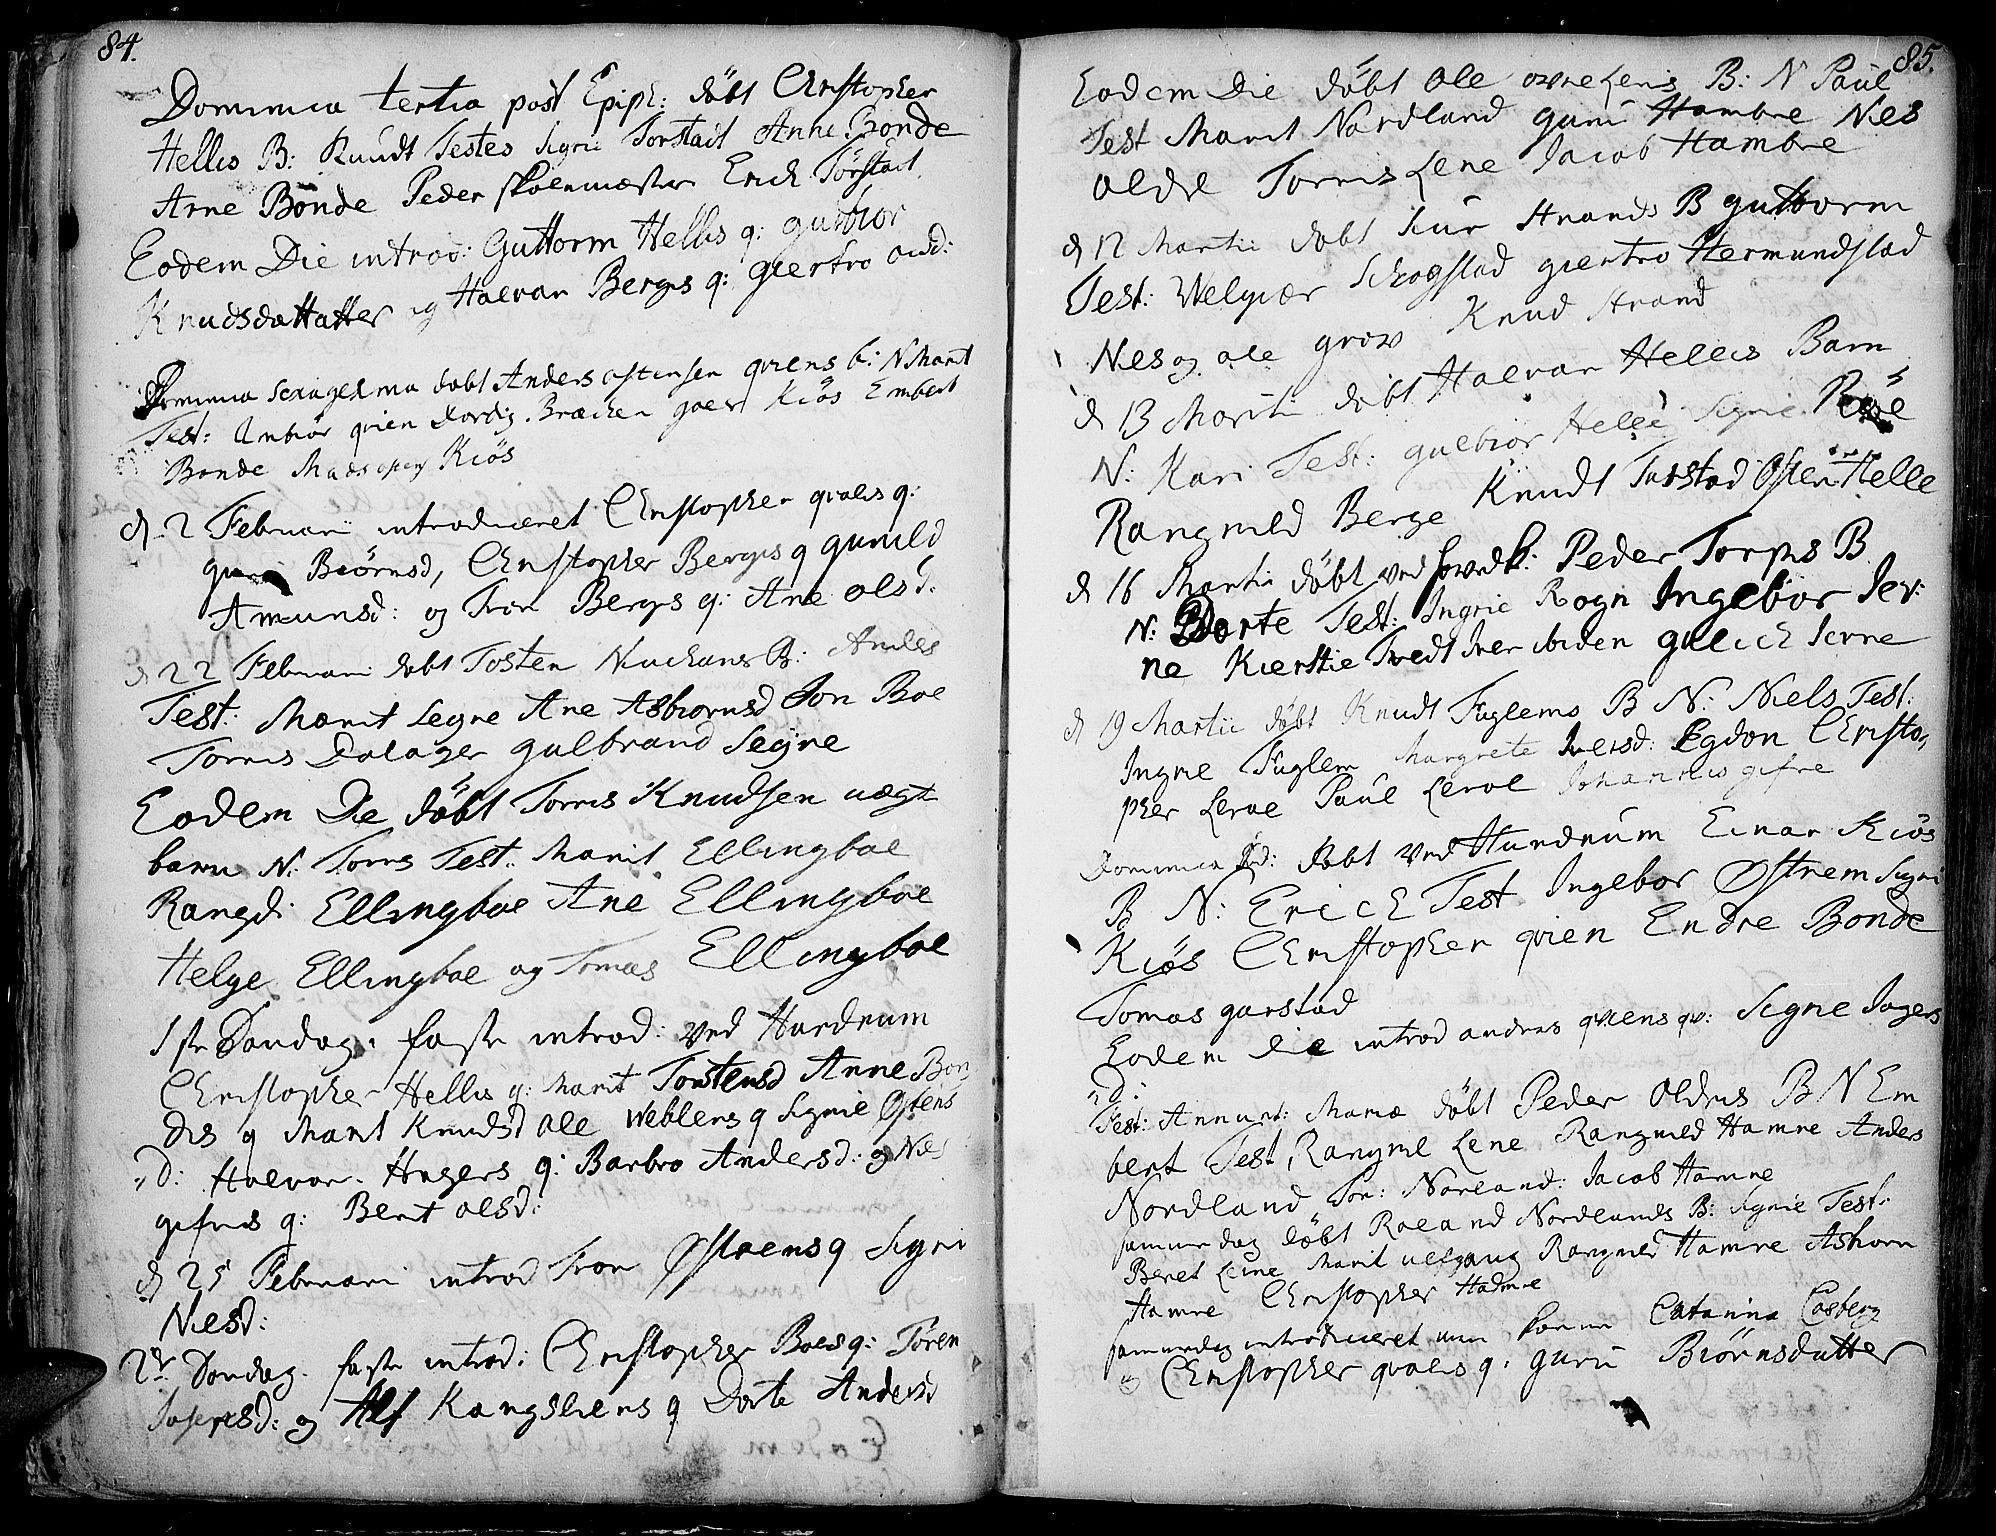 84.
Dominica tertia post Epiph: döbt Christopher
Hellis B: Knudt Testes Sigrii Torstad Anne Bonde
Arne Bonde Peder skolemester Erich Torstad.
Eodem Die introd: Guttorm Hellis q: gulbior
Knudsdatter og Halvor Bergs q: giertru
Dominica sexagesima döbt Anders ostensen qviens b: N Marit
Test: Anbiör qvien Bracken Kiös Embret
Bonde Mads Kiös
d. 2 Februarii introduceret Christopher qvales q:
guri Biörnsd, Christopher Bergs q gunild
Amunsd: og Tron Bergs q: Ane olsd.
d 22 Februari döbt Tosten B: Andes
Test: Marit Segne Ane Asbiornsd Jon Boe
Torris Dalager gulbrand Segne
Eodem Die döbt Torris Knudsen uægte
barn N: Torris Test: Marit Ellingboe
Rangdi Ellingboe Ane Ellingboe
Helge Ellingboe og Tomas Ellingboe
1ste Söndag i faste introd: ved Hurdrum
Christopher Hellis q: Marit Torstensd Anne Bon
des q Marit Knudsd ole Weblens q Signie Ostens
d: Halvor Hagers q: Barbro Andersd: og Niels
gifris q: Berit olsd:
d 25 Februari introd Tron Østrens q Sigri
Nilsd:
2den Söndag i faste introd: Christopher Boes q: Toren
Josepsd: og Alf Kangsliens q Dorte Andersd
85.
Eodem Die döbt ole B: N Paul
Test Marit Nordland guri Hambre Nes
oldre Torris Lene Jacob Hambre
d 12 Martii döbt Siur Strands B guttorm
Test: Welgiær Schogstad giertru Hermundstad
Nes og ole grov Knud Strand
d 13 Martii döbt Halvor Hellis Barn
N: Kari Test: gulbior Helle Signe
Rangnild Berge Knudt Torstad Osten Helle
d 16 Martii döbt ved hovedk: Peder Torps B
N: Dorte Test: Ingrie Rogn Ingebor Jer:
ne Kierstie Tvedt Iver ibiden gulich Jerne
d 19 Martii döbt Knudt Fuglems B N: Niels Test:
Ingrie Fuglem Margrete Iversd: Egdon Christo,,
pher Leroe Paul Leroe Johannis gifre
Dominica döbt ved Hurdrum Einar Kiös
B N: Erich Test Ingebor Østrem Sigri
Kiös Christopher qvien Endre Bonde
Tomas garstad
Eodem die introd andres qviens qv: Signe Jogers
d:
Fest: Annunt: Mariæ döbt Peder Oldris B N Em
bert Test, Rangnil Lene Rangnild Hamre Anders
Nordland Tor: Norland: Jacob Hamre
samme dag döbt Roland Nordlands B: Signie Test:
Beret Leine Marit Rangnild Hamre Asborn
Hamre Christopher Hamre
samme dag introduceret min konne Catarina Casberg
og Christopher qvales q: guru Biörnsdatter